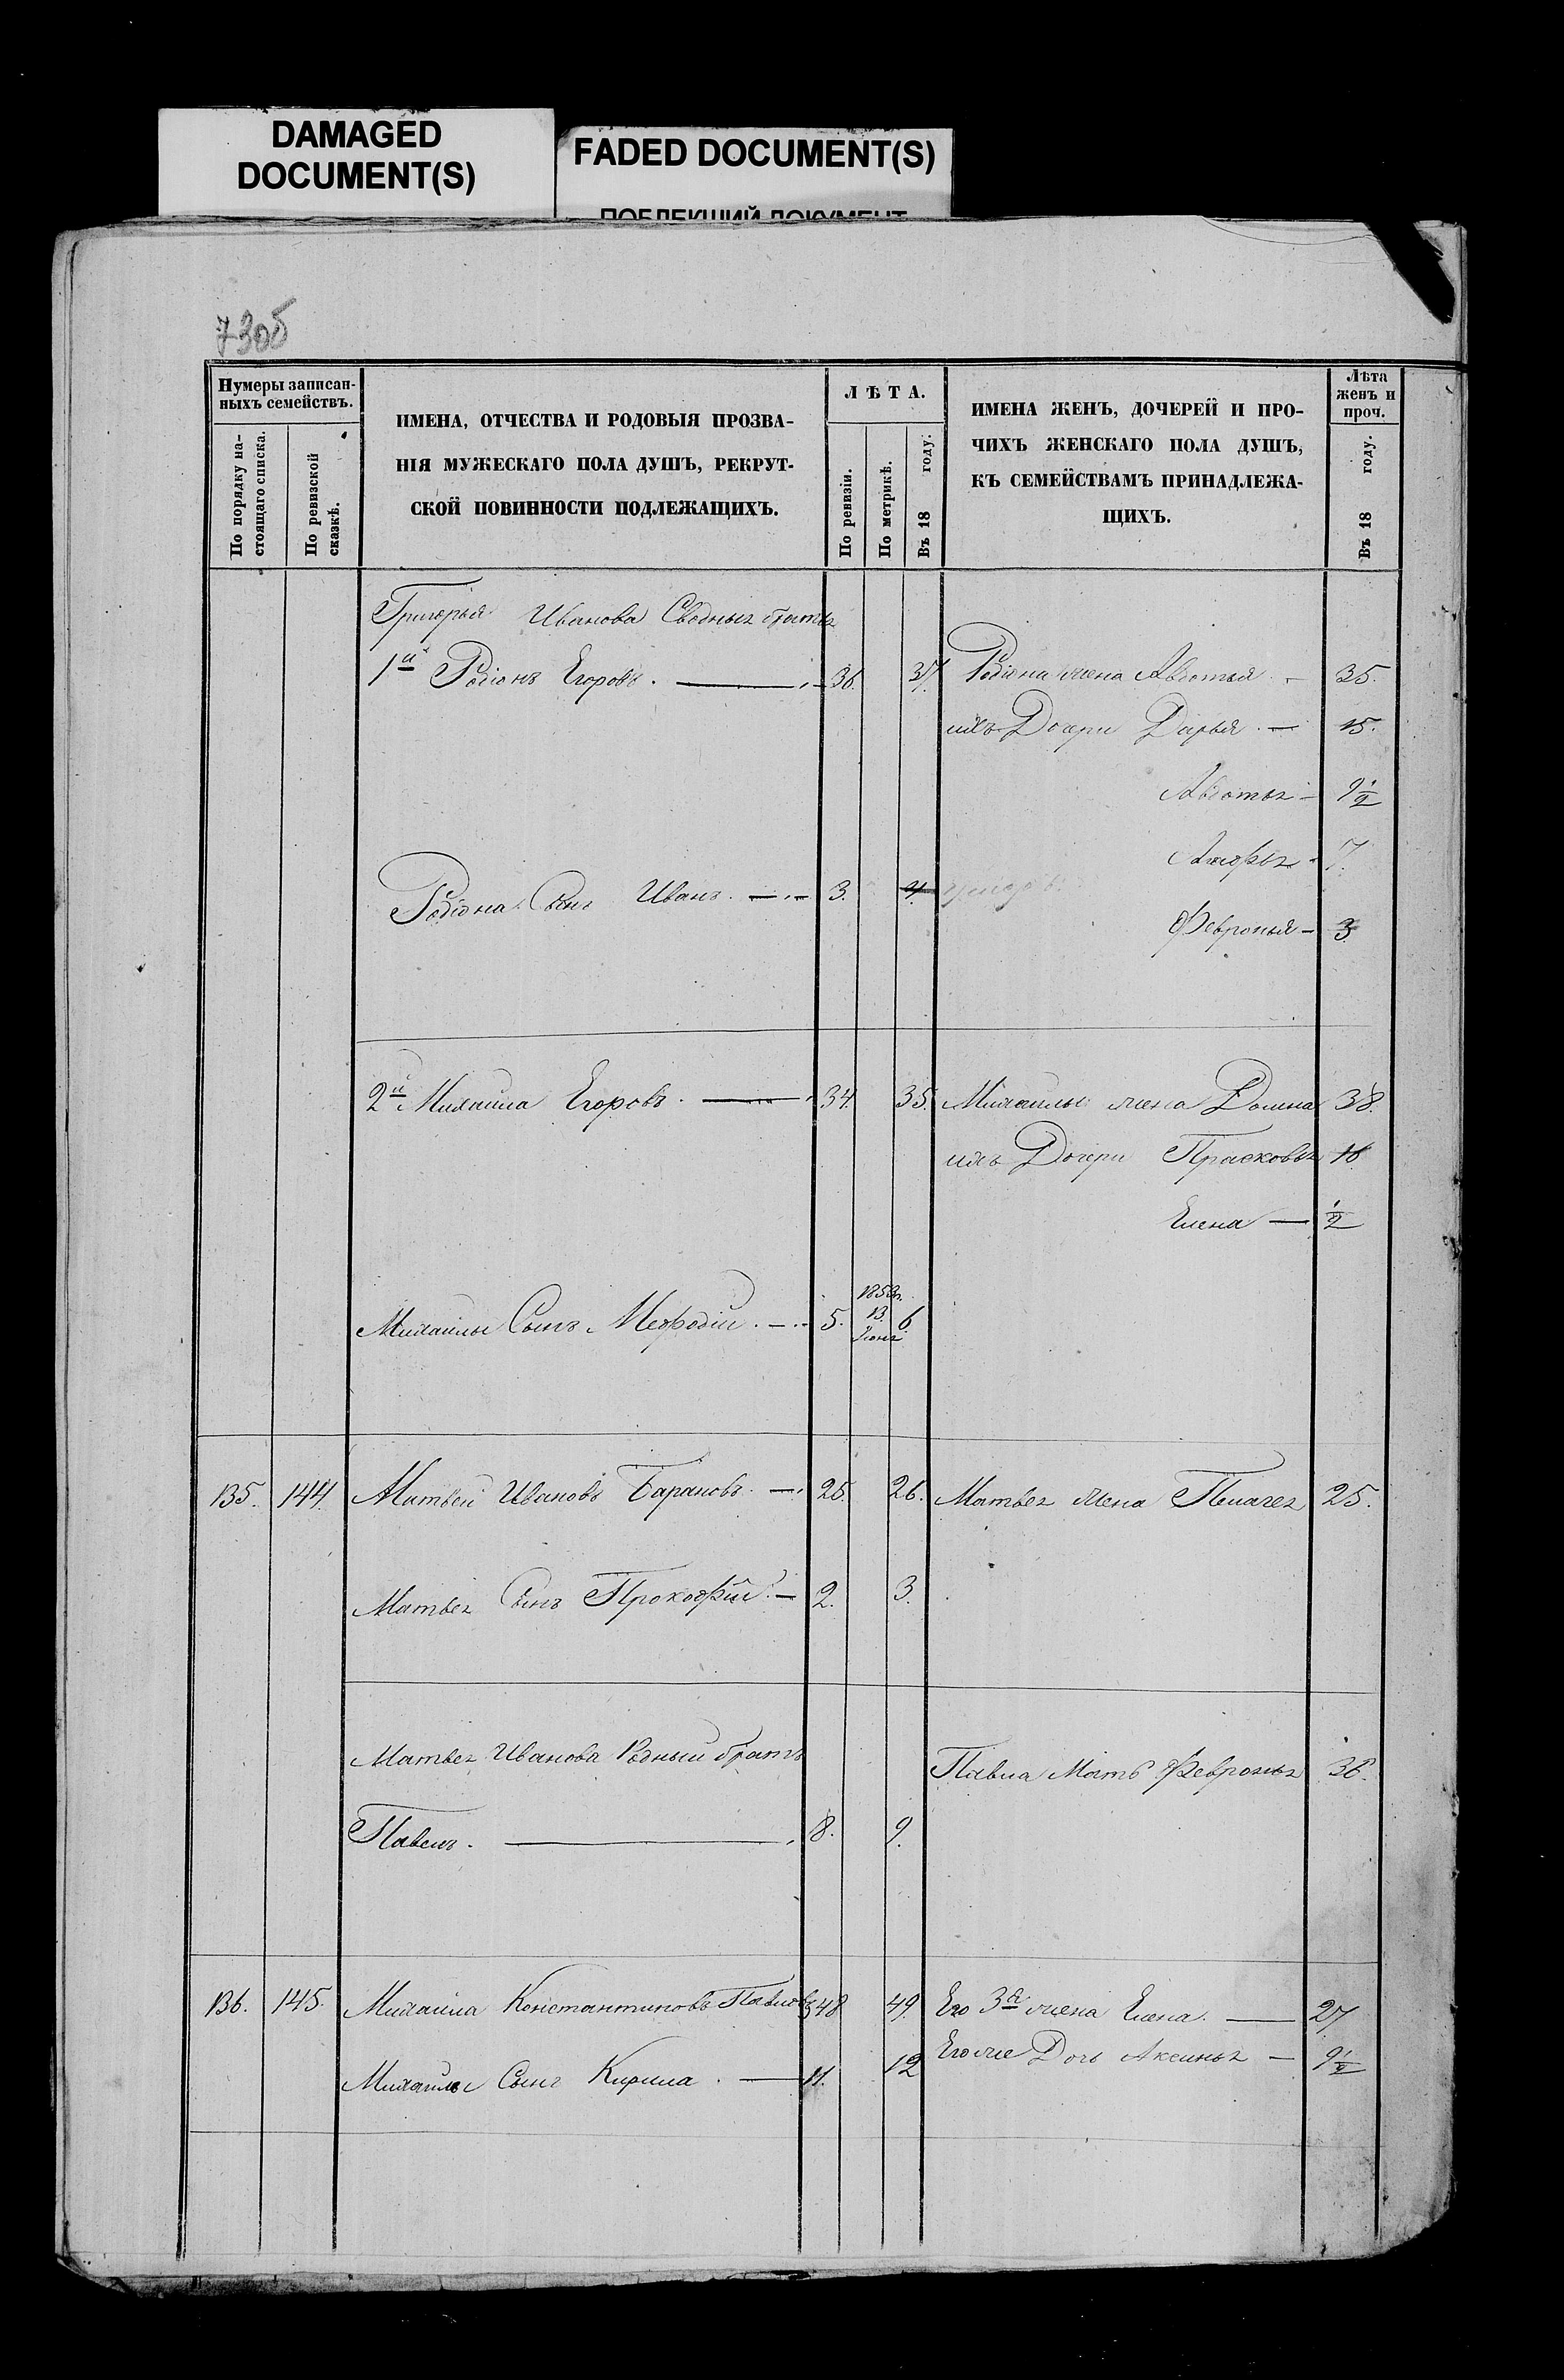 DAMAGED
DOCUMENT(S)
FADED DOCUMENT(S)
ПОБЛЕКШИЙ ДОКУМЕНТ
7305
Нумеры записан-
ныхъ семействъ.
По порядку на-
стоящаго списка.
По ревизской
сказкѣ.
ИМЕНА, ОТЧЕСТВА И РОДОВЫЯ ПРОЗВА-
НІЯ МУЖЕСКАГО ПОЛА ДУШЪ, РЕКРУТ-
СКОЙ ПОВИННОСТИ ПОДЛЕЖАЩИХЪ.
ЛѢТА.
По ревизіи.
По метрикѣ.
Въ 18 году.
ИМЕНА ЖЕНЪ, ДОЧЕРЕЙ И ПРО-
ЧИХЪ ЖЕНСКАГО ПОЛА ДУШЪ,
КЪ СЕМЕЙСТВАМЪ ПРИНАДЛЕЖА-
ЩИХЪ.
Лѣта
женъ и
проч.
Въ 18 году.
Григорья Иванова Сводныя братья
1й Родіонъ Егоровъ. — 36. 37. Родіона жена Авдотья — 35.
ихъ Дочери Дарья. — 15.
Авдотья — 9 1/2
7.
Родіона Сынъ Иванъ. — 3. 4.
Февронья — 3
2й Михаила Егоровъ. — 34. 35. Михаилы жена Домна 38.
ихъ Дочери Прасковья 16
Елена — 1/2
Михаилы Сынъ Мефодій. — 5. 13 Іюня 6.
135. 144. Матвей Ивановъ Барановъ. — 25. 26. Матвея жена Пелагея 25.
Матвея Сынъ Прокофій. — 2. 3.
Матвея Иванова Родный братъ
Павла Мать Февронья 36.
Павелъ. — 8. 9.
136. 145. Михаила Константиновъ Павловъ 48 49. Его 3я жена Елена. — 27.
Его же Дочь Аксинья — 9 1/2
Михаилы Сынъ Кирила. — 11. 12